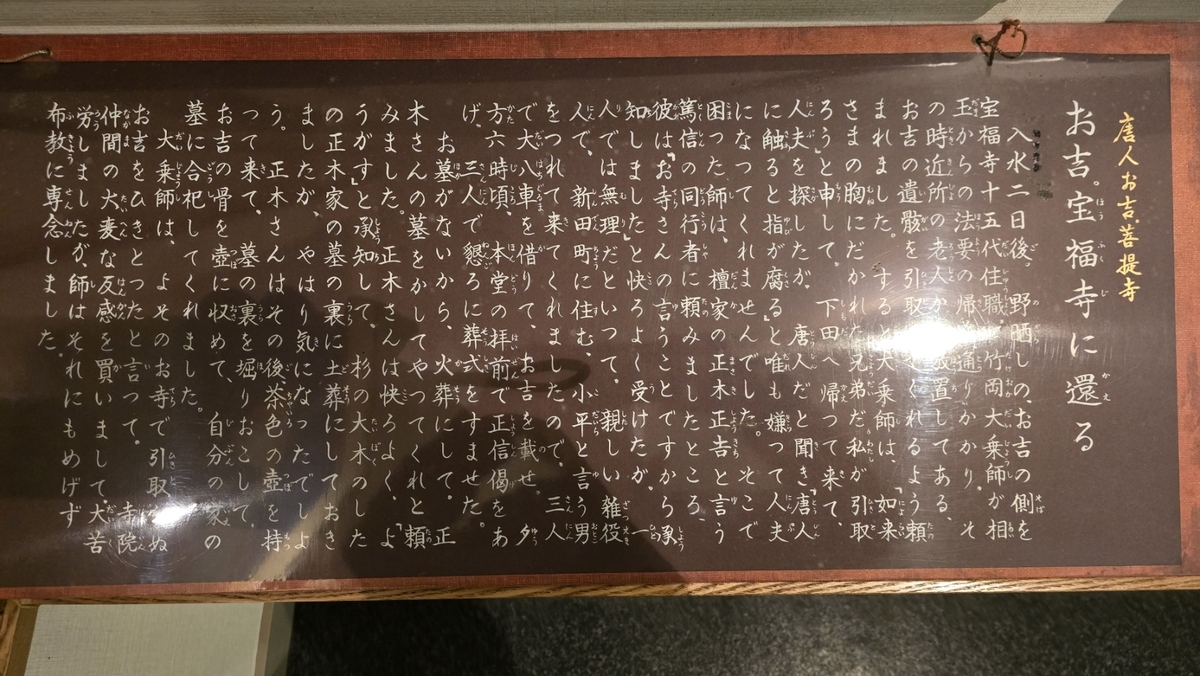 唐人お吉菩提寺
お吉。宝福寺に還る
入水二日後、野晒しの、お吉の側を
宝福寺十五代住職 竹岡大乗師が相
玉からの法要の帰 通りかかり。そ
の時近所の老人か 放置してある、
お吉の遺骸を引取 くれるよう頼
まれました。すると大乗師は、「如来
さまの胸にだかれた兄弟だ私が引取
ろう」と申して。下田へ帰つて来て、
人夫を探したが、唐人だと聞き「唐人
に触ると指が腐る」と唯も嫌つて人夫
になつてくれませんでした。そこで
困つた師は、檀家の正木正吉と言う
篤信の同行者に頼みましたところ、
彼は「お寺さんの言うことですから承
知しました」と快ろよく受けたが、一
人では無理だといつて、親しい雑役
人で、新田町に住む、小平と言う男
をつれて来てくれましたので、三人
で大八車を借りて、お吉を載せ。夕
方六時頃、本堂の拝前で正信偈をあ
げ、三人で懇ろに葬式をすませた。
お墓がないから、火葬にして。正
木さんの墓をかしてやつてくれと頼
みました。正木さんは快ろよく、「よ
うがす」と承知して。杉の大木のした
の正木家の墓の裏に土葬にしておき
ましたが、やはり気になつたでしよ
う。正木さんはその後、茶色の壺を持
つて来て、墓の裏を堀りおこして、
お吉の骨を壺に収めて、自分の家の
墓に合祀してくれました。
大乗師は、よそのお寺で引取 ぬ
お吉をひきとつたと言つて。寺院
仲間の大麦な反感を買いまして、大苦
労しましたが、師はそれにもめげず
布教に専念しました。